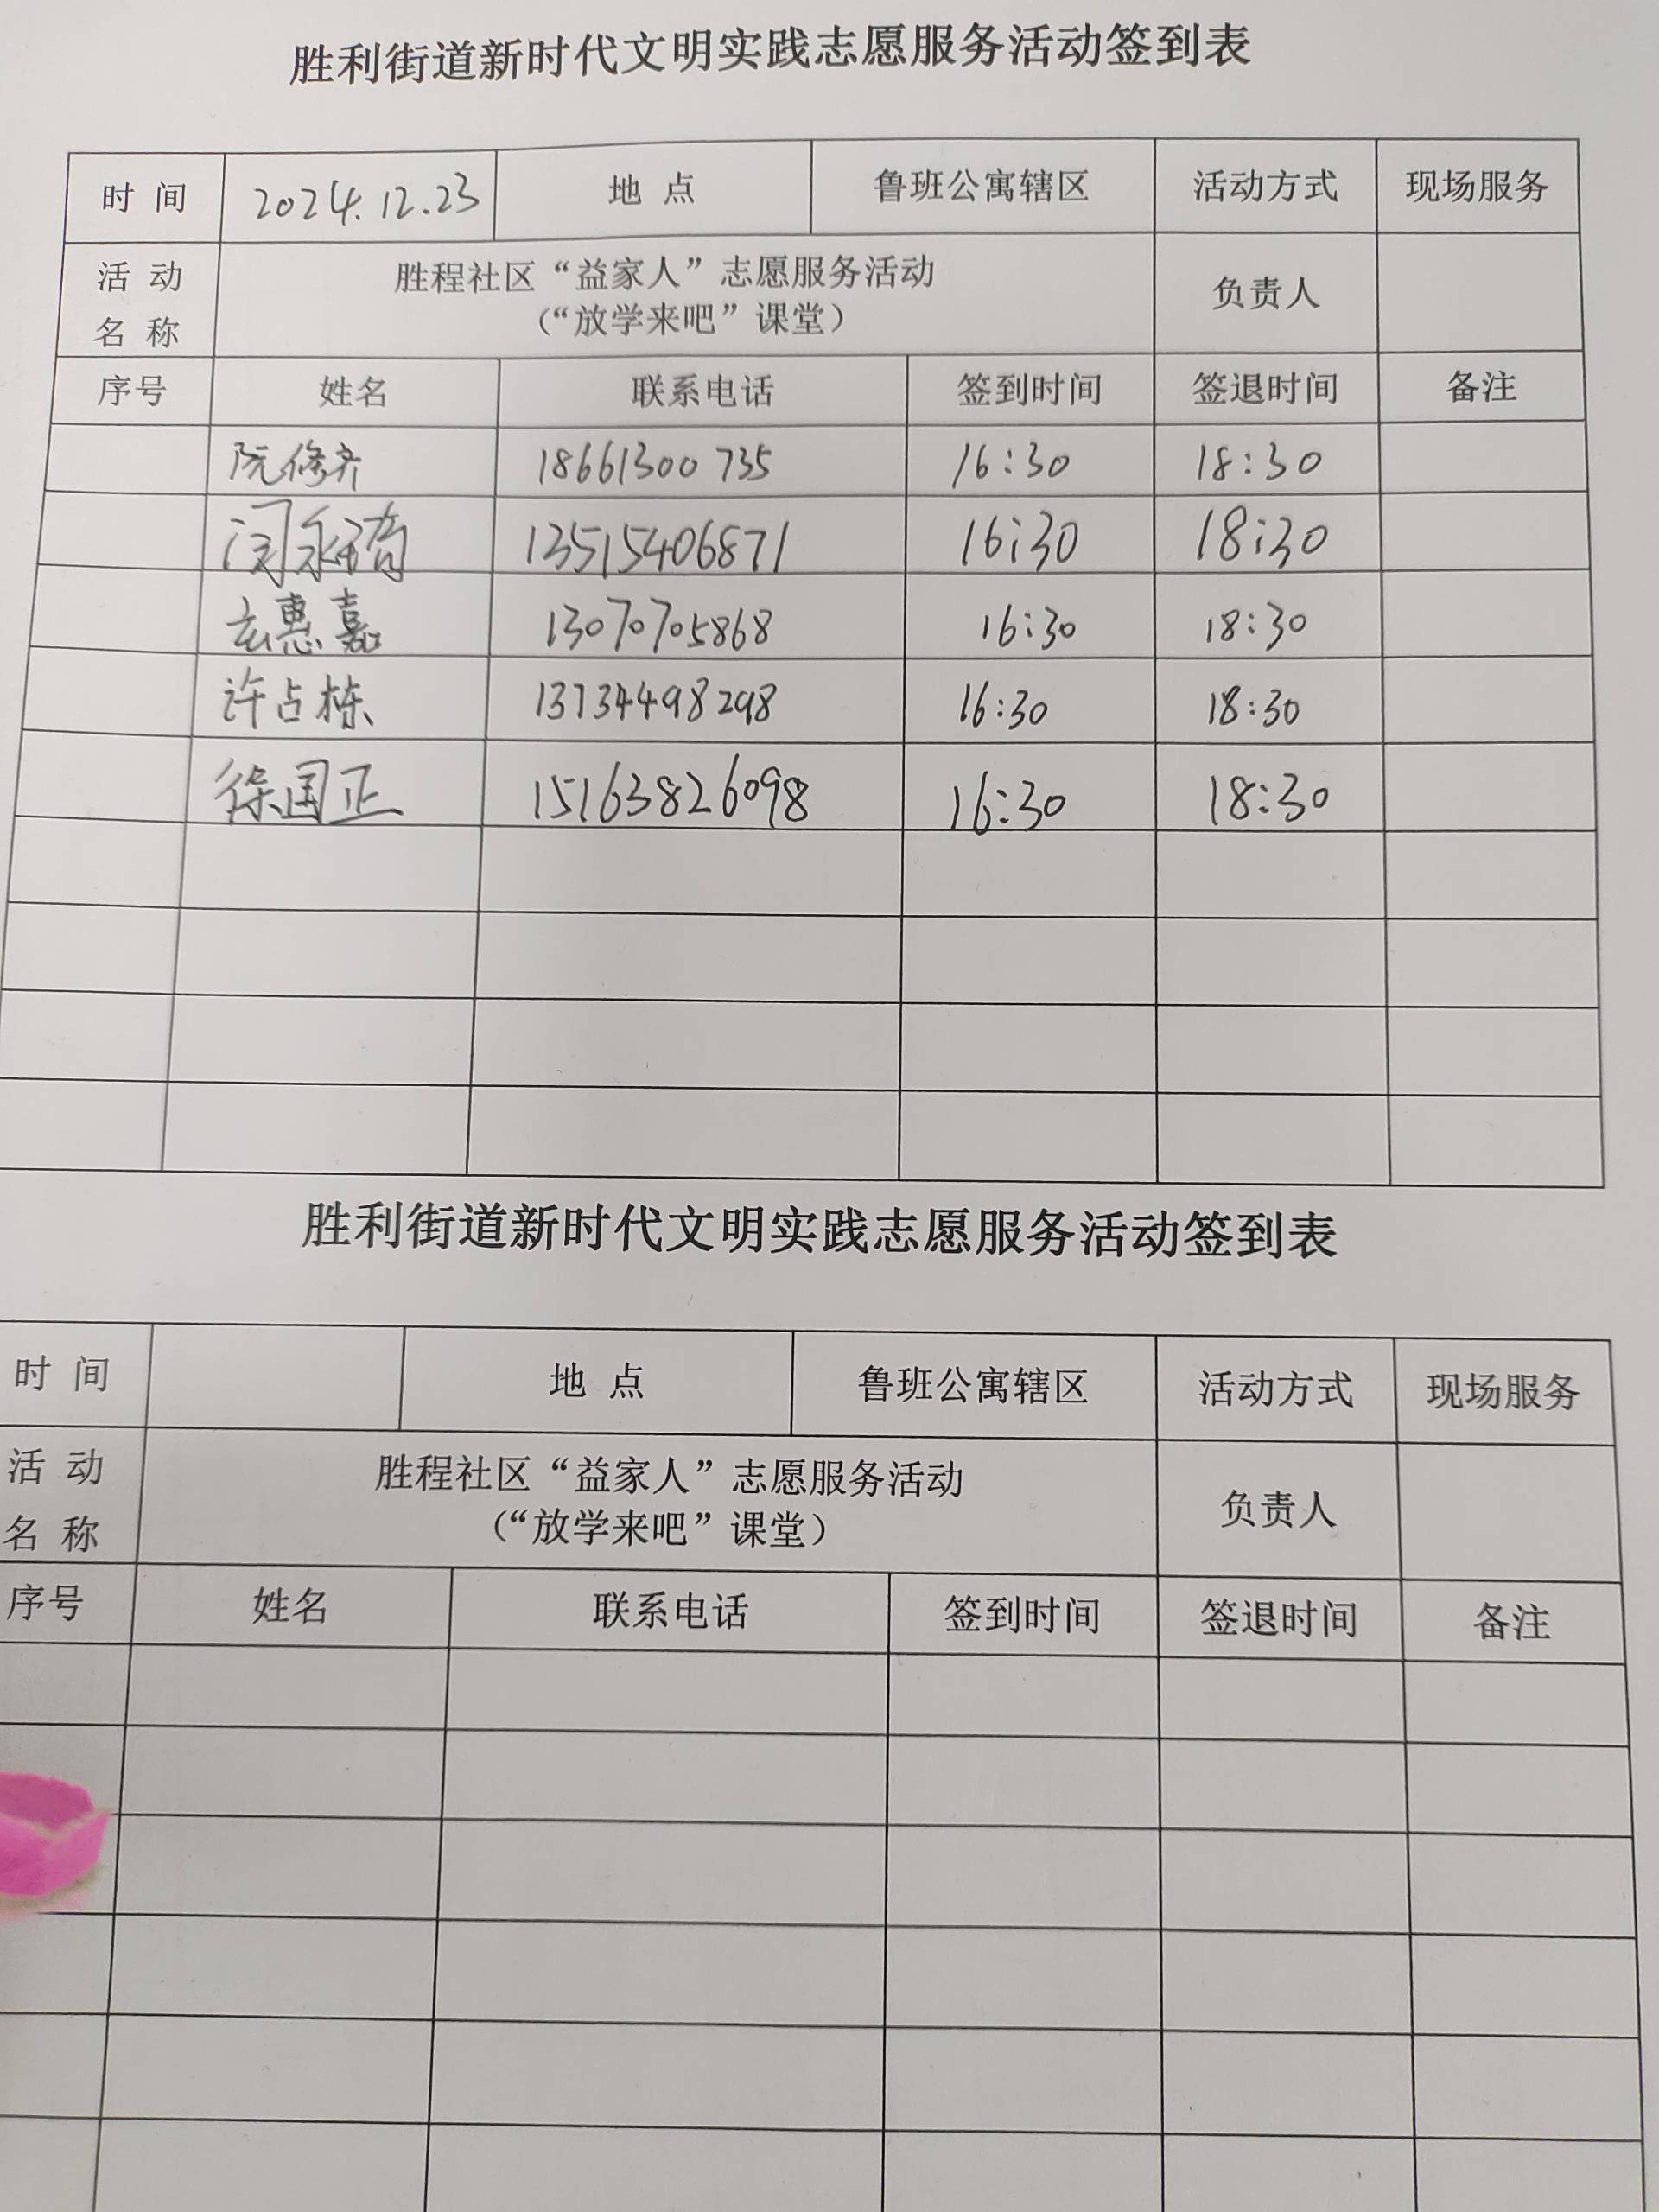 胜利街道新时代文明实践志愿服务活动签到表
时 间 2024.12.23 地 点 鲁班公寓辖区 活动方式 现场服务
活 动 名 称 胜程社区“益家人”志愿服务活动 负责人
(“放学来吧”课堂)
序号 姓名 联系电话 签到时间 签退时间 备注
阮修齐 18661300735 16:30 18:30
13515406871 16:30 18:30
玄惠嘉 13070705868 16:30 18:30
许占栋 13734498298 16:30 18:30
徐国正 15163826098 16:30 18:30
胜利街道新时代文明实践志愿服务活动签到表
时 间 地 点 鲁班公寓辖区 活动方式 现场服务
活 动 名 称 胜程社区“益家人”志愿服务活动 负责人
(“放学来吧”课堂)
序号 姓名 联系电话 签到时间 签退时间 备注